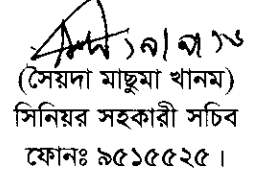 (সৈয়দা মাছুমা খানম)
সিনিয়র সহকারী সচিব
ফোনঃ ৯৫১৫৫২৫।